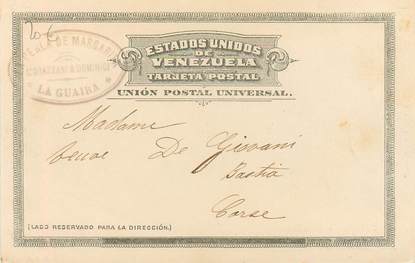 20 €
PERLA DE MARGARITA
LA GUAIRA
ESTADOS UNIDOS
DE
VENEZUELA
TARJETA POSTAL
UNIÓN POSTAL UNIVERSAL.
Madame
veuve De Giovani
Bastia
Corse
(LADO RESERVADO PARA LA DIRECCIÓN.)